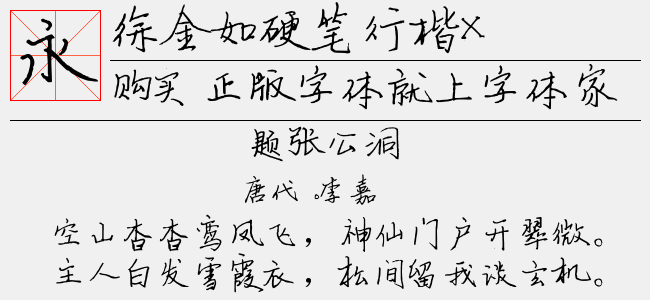 永
徐金如硬笔行楷x
购买 正版字体就上字体家
题张公洞
唐代 。李嘉
空山杳杳鸾凤飞，神仙门户开翠微。
主人白发雪霞衣，松间留我谈玄机。